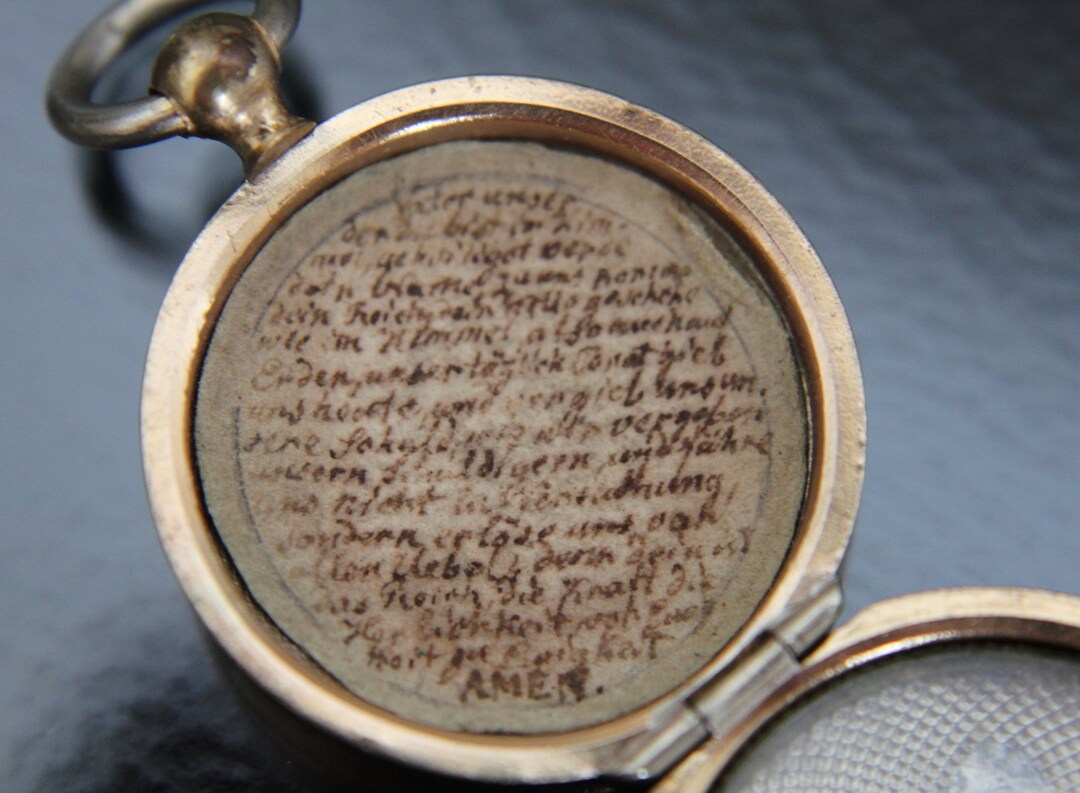 Vater unser,
der du bist im him-
mel, geheiliget werde
dein Name, zu uns komme
dein Reich, dein wille geschehe
wie im Himmel, also auch auf
Erden, unser täglich Brot gieb
uns heute, und vergieb uns un-
sere Schuld, wie wir vergeben
unsern Schuldigern, und führe
uns nicht in Versuchung,
sondern erlöse uns von
allen Uebel, denn dein ist
das Reich, die Kraft, die
Herlichkeit, von Ewig-
keit zu Ewigkeit
AMEN.